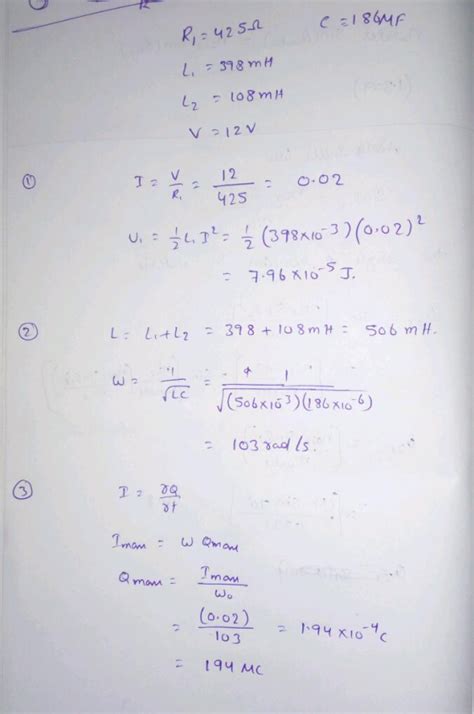 R₁ = 425Ω C = 186MF
L₁ = 398 mH
L₂ = 108 mH
V = 12 V
① I = V/R₁ = 12/425 = 0.02
U₁ = 1/2 L₁ I² = 1/2 (398×10⁻³)(0.02)²
= 7.96 × 10⁻⁵ J.
② L = L₁+L₂ = 398 + 108 mH = 506 mH.
W = 1/√LC = 1/√(506×10⁻³)(186×10⁻⁶)
= 103 rad/s.
③ I = ∂Q/∂t
Imax = W Qmax
Qmax = Imax/W₀
= (0.02)/103 = 1.94 × 10⁻⁴ C
= 194 MC